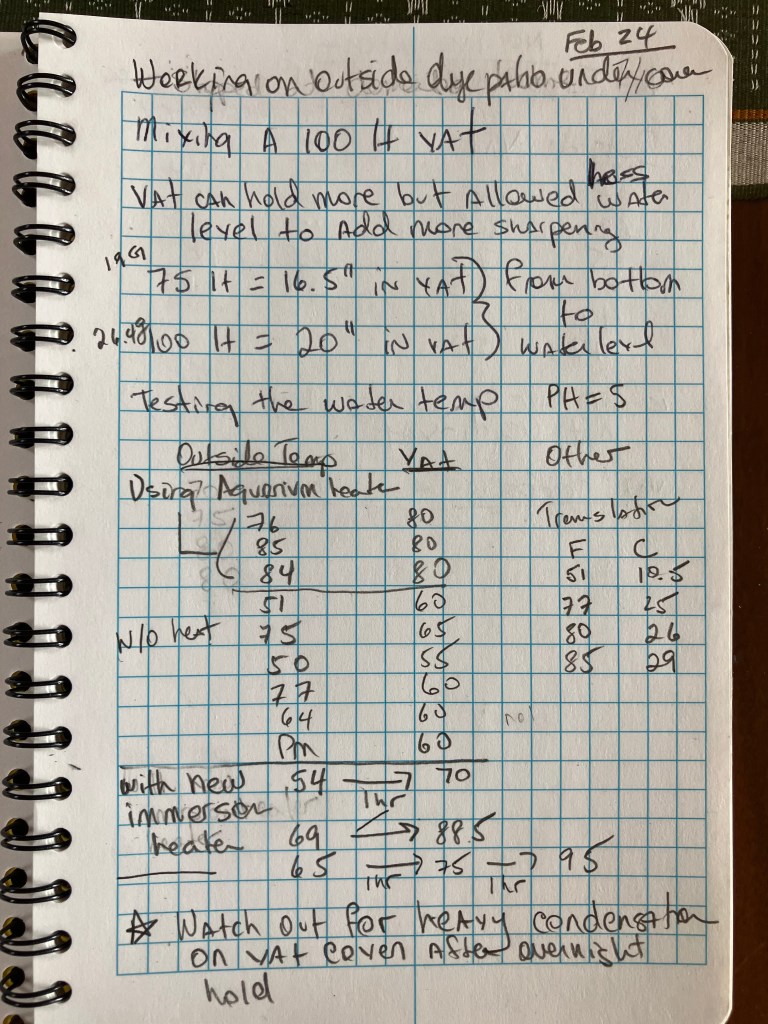 Feb 24
Working on outside dye patio under cover
Mixing A 100 lt VAT
VAT can hold more but Allowed less water
level to Add more sharpening
19 gl 75 lt = 16.5" in VAT } from bottom
to
26.48 100 lt = 20" in VAT } water level
Testing the water temp PH = 5
Outside Temp VAT Other
Using Aquarium heater
76 80 Translation
85 80 F C
84 80 51 10.5
51 60 77 25
W/o heat 75 65 80 26
50 55 85 29
77 60
64 60
Pm 60
with new 54 → 70
1 hr
immerson
heater 69 → 88.5
65 → 75 → 95
1 hr 1 hr
☆ Watch out for heavy condensation
on VAT cover After overnight
hold